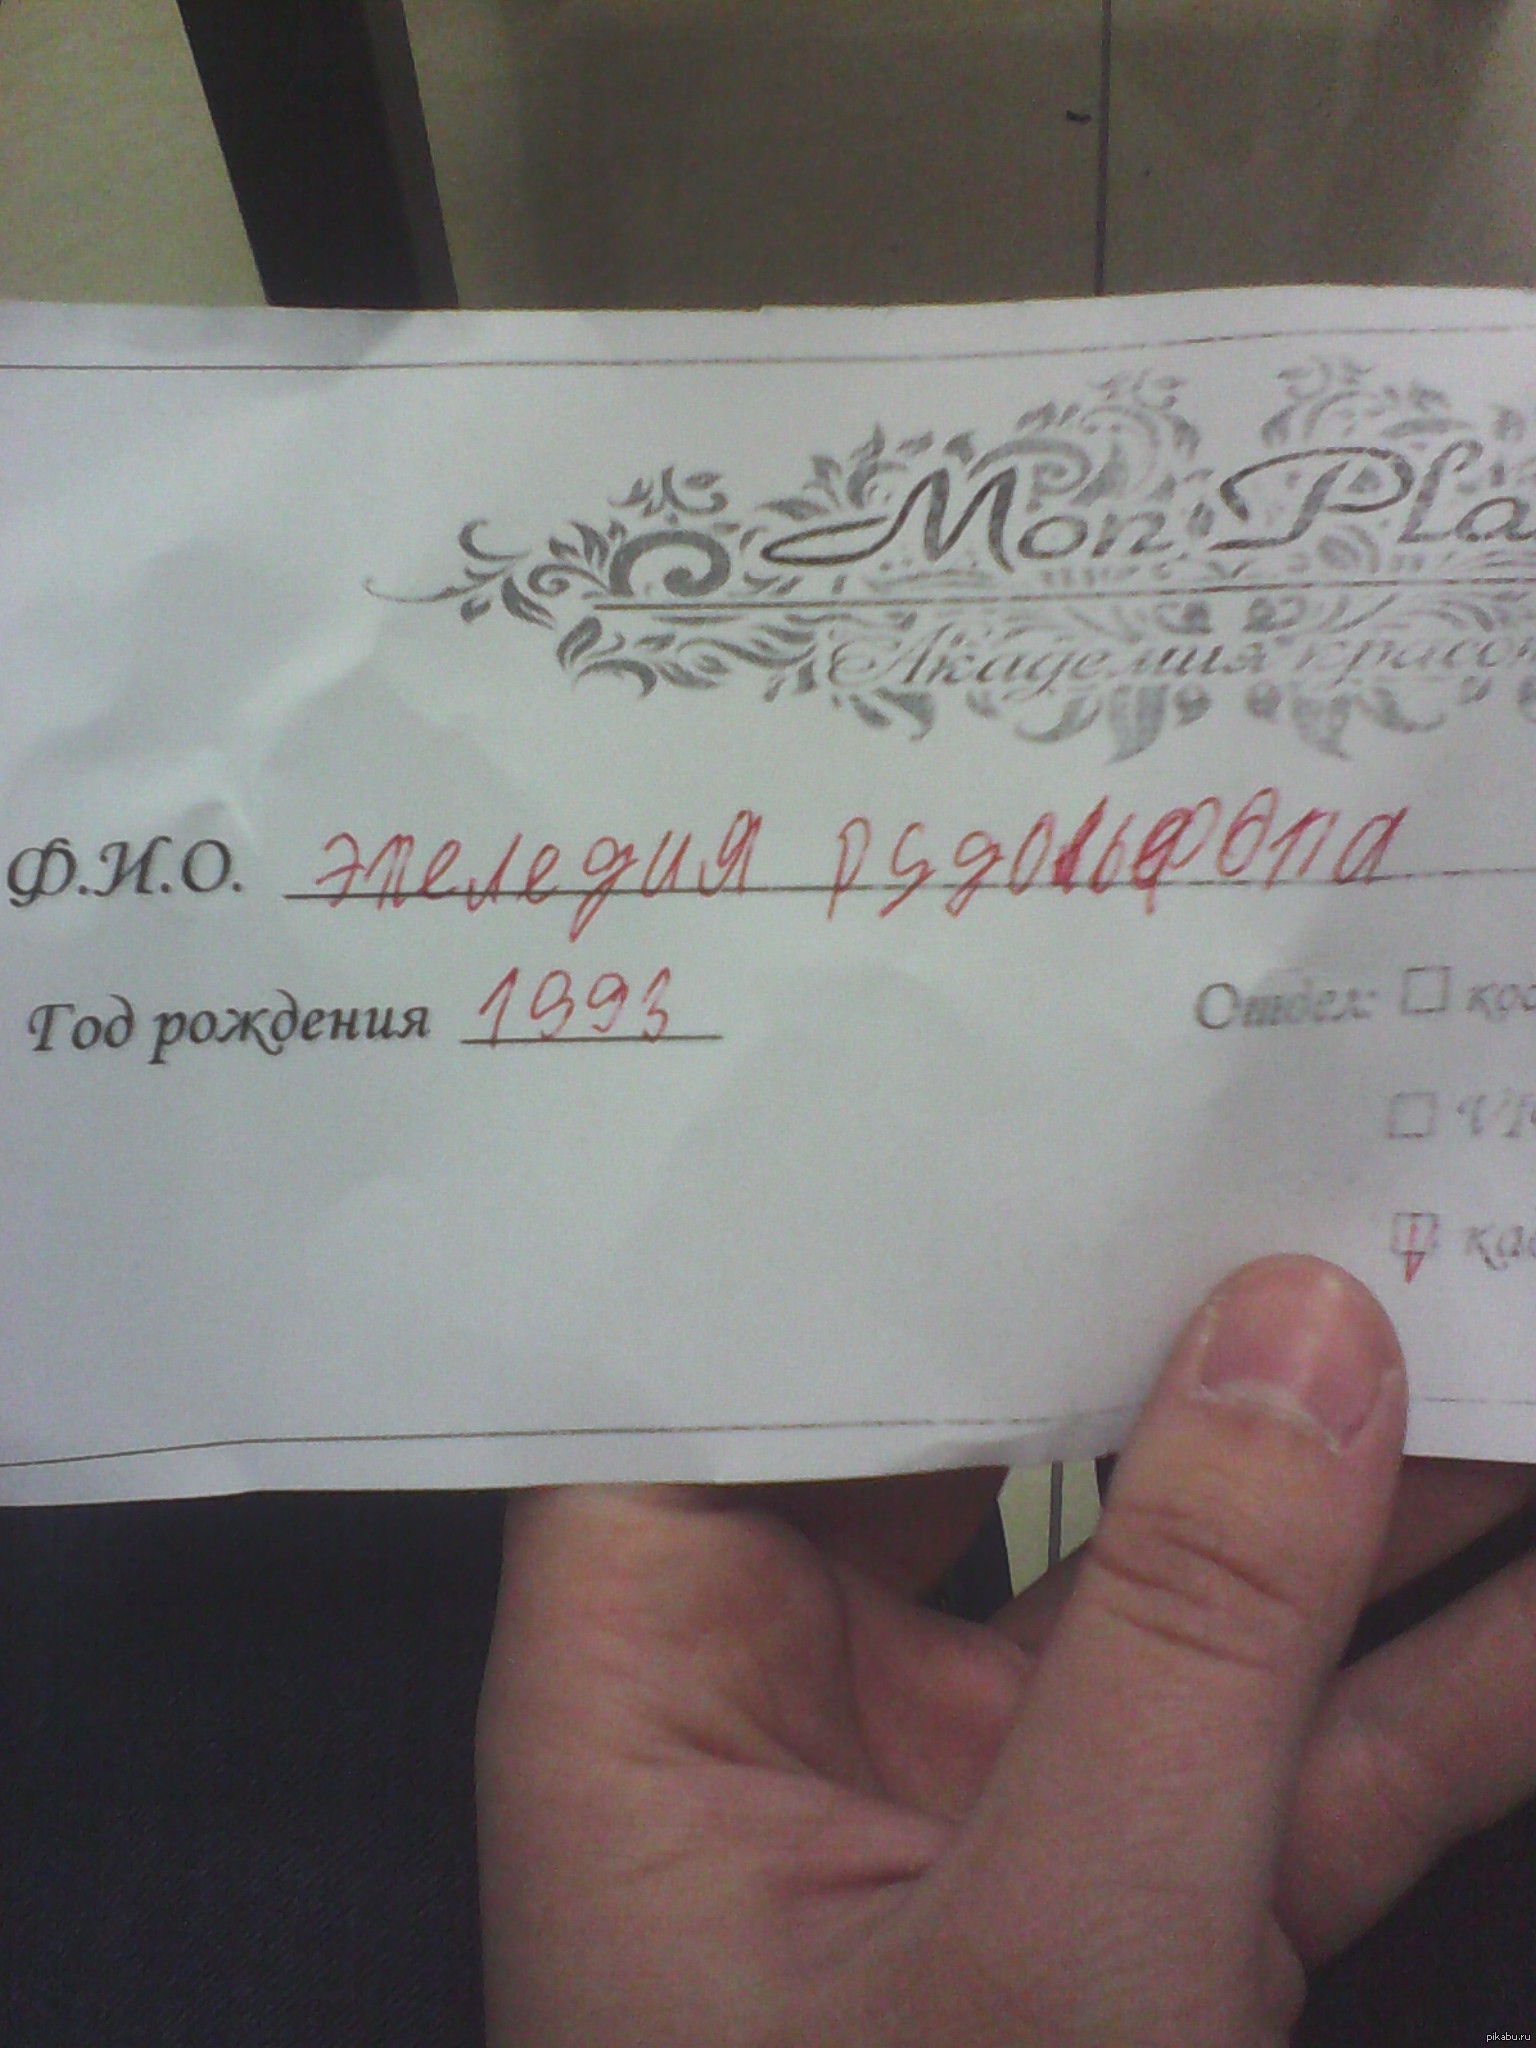 Mon Pla
Академия красот
Ф.И.О. эпеледия рудольфовпа
Год рождения 1993
Отдел: кос
VI
кас
pikabu.ru